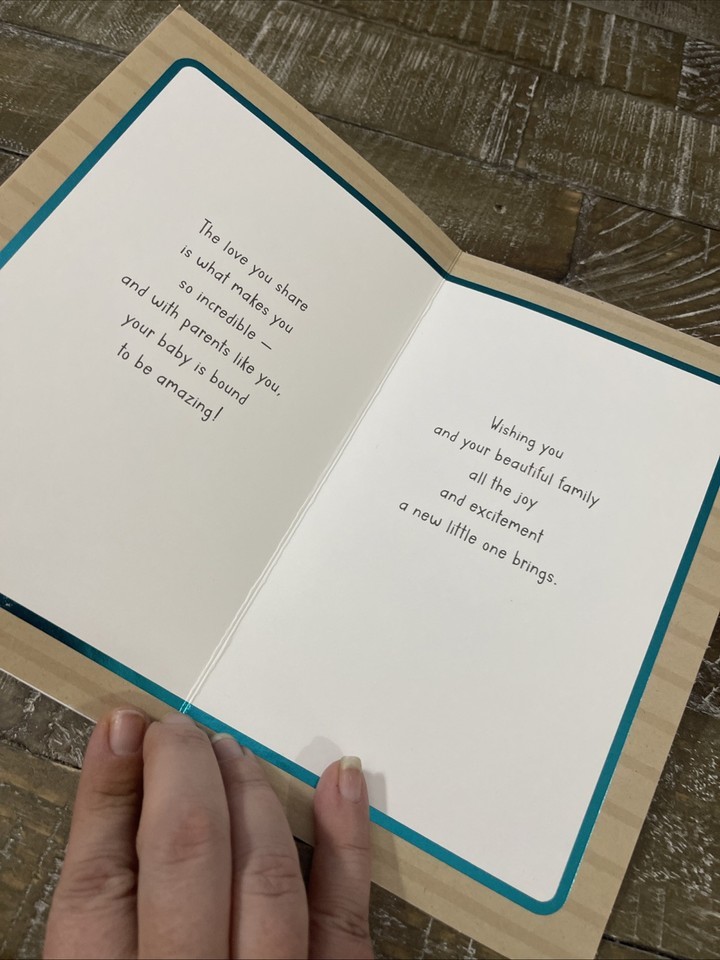 The love you share
is what makes you
so incredible —
and with parents like you,
your baby is bound
to be amazing!
Wishing you
and your beautiful family
all the joy
and excitement
a new little one brings.